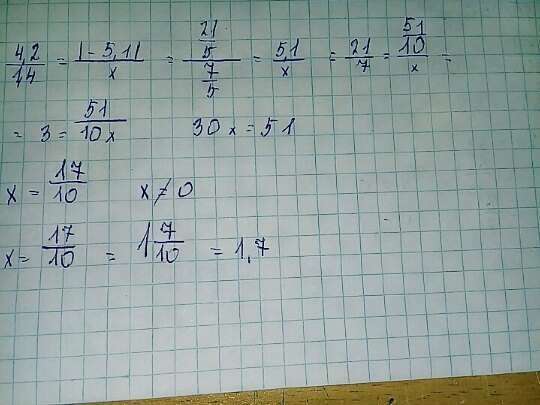 4,2/1,4 = |-5,1|/x = 21/5/7/5 = 5,1/x = 21/7 = 51/10/x =
= 3 = 51/10x 30x = 51
x = 17/10 x ≠ 0
x = 17/10 = 1 7/10 = 1,7